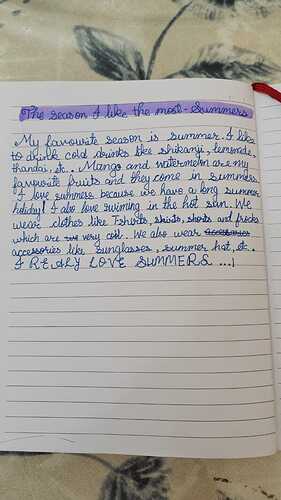 The season I like the most - Summers
My favourite season is summer. I like
to drink cold drinks like shikanji, lemonade,
thandai, etc.. Mango and watermelon are my
favourite fruits and they come in summers.
I love summers because we have a long summer
holiday! I also love swiming in the hot sun. We
wear clothes like Tshirts, skirts, shorts and frocks
which are very cool. We also wear accessories
accessories like sunglasses, summer hat, etc..
I REALLY LOVE SUMMERS ...!